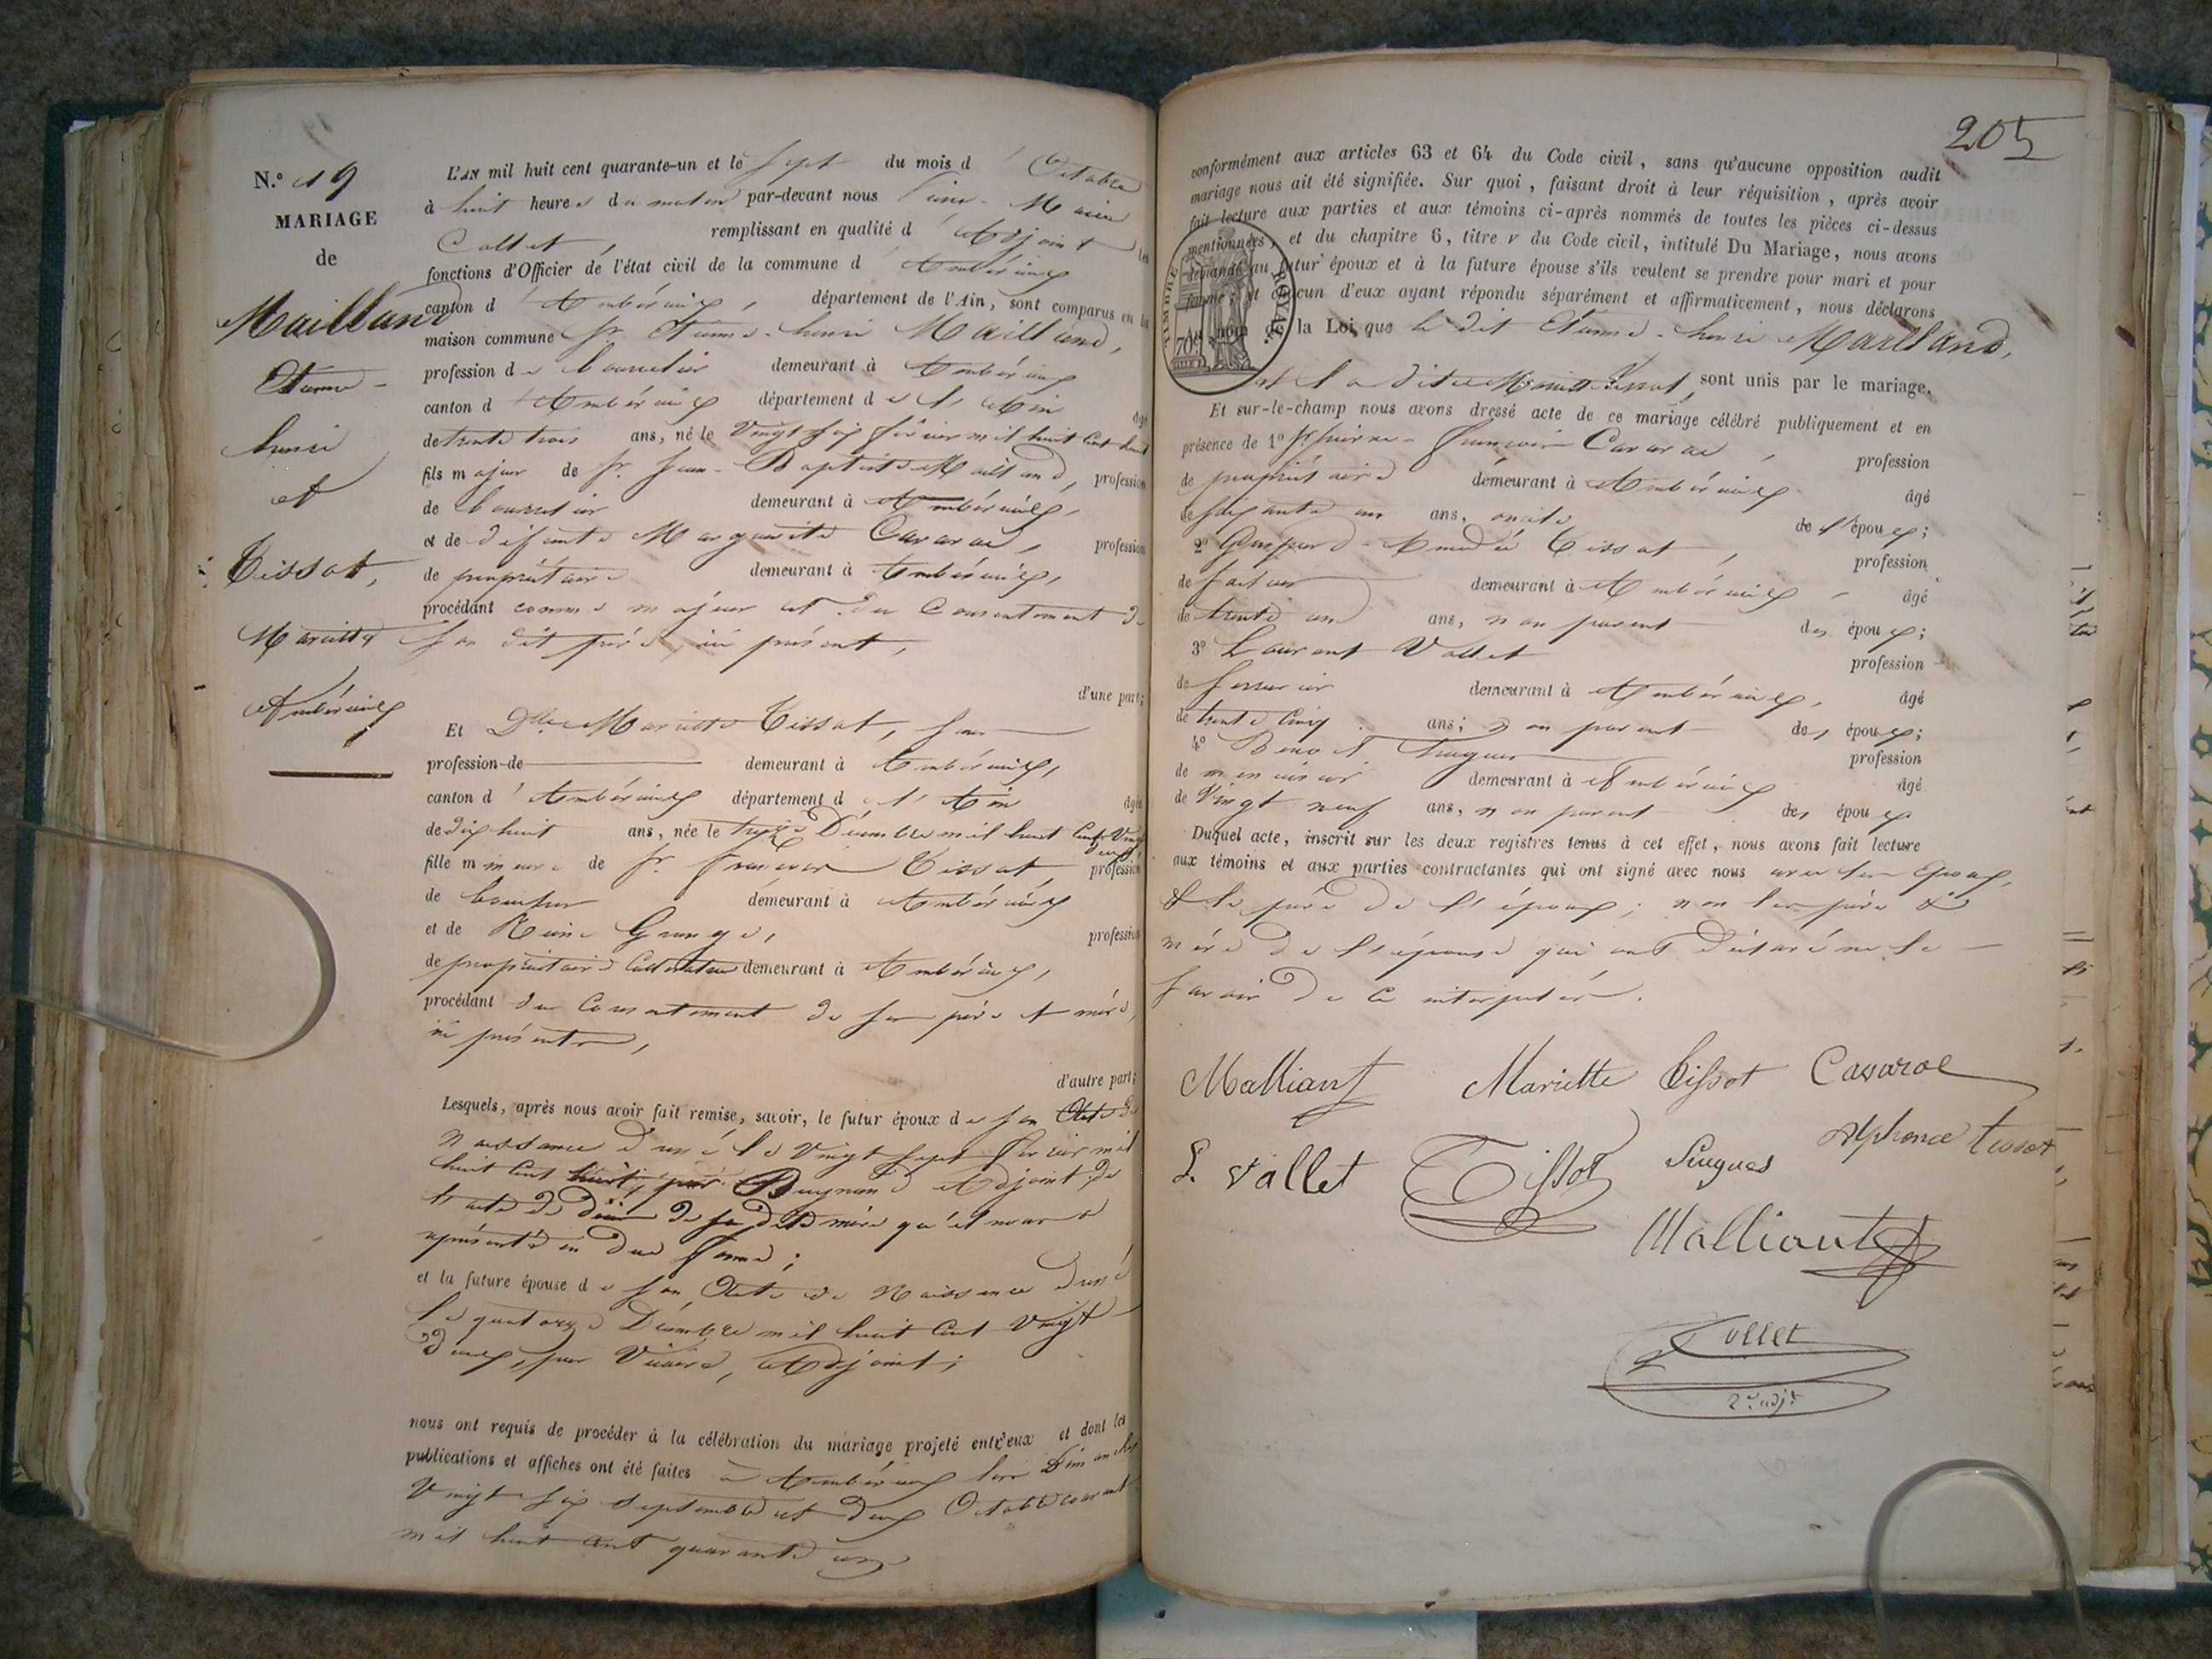 N.º 19
MARIAGE
de
Mailland
Etienne-
henri
et
Tissot,
Mariette
Ambérieux
L'AN mil huit cent quarante-un et le sept du mois d'Octobre
à huit heures du matin par-devant nous Marie
Collet, remplissant en qualité d'Adjoint les
fonctions d'Officier de l'état civil de la commune d'Ambérieux
canton d'Ambérieux, département de l'Ain, sont comparus en la
maison commune Sr. Etienne-henri Mailland,
profession de bourrelier demeurant à Ambérieux
canton d'Ambérieux département de l'Ain âgé
de trente trois ans, né le Vingt six février mil huit Cent huit
fils majeur de Sr. Jean-Baptiste Mailland, profession
de bourrelier demeurant à Ambérieux,
et de défunte Marguerite Cavaroc, profession
de propriétaire demeurant à Ambérieux,
procédant comme majeur et du Consentement de
son dit père, ici présent,
d'une part;
Et Dlle Mariette Tissot, sans
profession de demeurant à Ambérieux,
canton d'Ambérieux département de l'Ain âgée
de dix huit ans, née le treize Décembre mil huit Cent Vingt
deux,
fille mineure de Sr. françois Tissot, profession
de demeurant à Ambérieux
et de Reine Grange, profession
de propriétaire Cultivateur demeurant à Ambérieux,
procédant du Consentement de ses père et mère,
ici présents,
d'autre part;
Lesquels, après nous avoir fait remise, savoir, le futur époux de son Acte de
naissance dressé le Vingt sept février mil
huit Cent huit, par Adjoint, de
l'acte de décès de sa dite mère qu'il nous a
représenté en due forme;
et la future épouse de son Acte de Naissance dressé
le quatorze Décembre mil huit Cent Vingt
deux, par Adjoint;
nous ont requis de procéder à la célébration du mariage projeté entr'eux et dont les
publications et affiches ont été faites à Ambérieux les Dimanches
Vingt six septembre et deux Octobre courant
mil huit cent quarante un
205
conformément aux articles 63 et 64 du Code civil, sans qu'aucune opposition audit
mariage nous ait été signifiée. Sur quoi, faisant droit à leur réquisition, après avoir
fait lecture aux parties et aux témoins ci-après nommés de toutes les pièces ci-dessus
mentionnées, et du chapitre 6, titre v du Code civil, intitulé Du Mariage, nous avons
demandé au futur époux et à la future épouse s'ils veulent se prendre pour mari et pour
femme; et chacun d'eux ayant répondu séparément et affirmativement, nous déclarons
Au nom de la Loi, que le dit Etienne-henri Mailland,
et la dite Mariette Tissot, sont unis par le mariage.
TIMBRE ROYAL.
70
Et sur-le-champ nous avons dressé acte de ce mariage célébré publiquement et en
présence de 1º Sr. pierre-françois Cavaroc, profession
de propriétaire demeurant à Ambérieux âgé
de soixante un ans, oncle de l'époux;
2º Gaspard-Amédée Tissot, profession
de demeurant à Ambérieux, âgé
de trente un ans, non parent des époux;
3º Laurent Vallet profession
de serrurier demeurant à Ambérieux, âgé
de trente Cinq ans; non parent des époux;
4º Benoit Sugues profession
de menuisier demeurant à Ambérieux âgé
de Vingt neuf ans, non parent des époux
Duquel acte, inscrit sur les deux registres tenus à cet effet, nous avons fait lecture
aux témoins et aux parties contractantes qui ont signé avec nous avec les Epoux,
& le père de l'époux; non les père &
mère de l'épouse qui ont déclaré ne le
savoir de ce interpelés.
Malliant Mariette Tissot Cavaroc
L. Vallet Tissot Sugues Alphonce tissot
Malliant
Collet
2e adjt